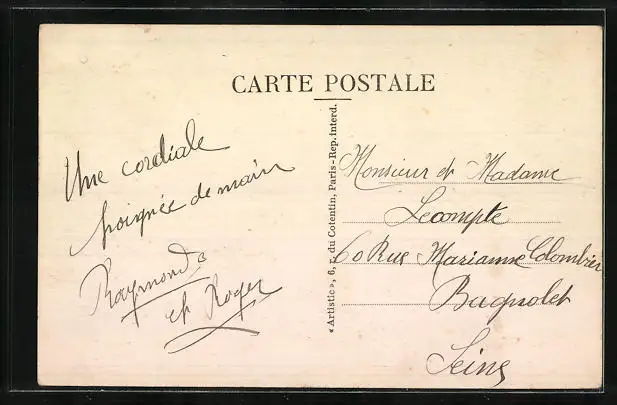 CARTE POSTALE
Une cordiale
poignée de main
Raymonde
et Roger
« Artistic », 6, r. du Cotentin, Paris - Rep. interd.
Monsieur et Madame
Lecompte
60 Rue Marianne Colombier
Bagnolet
Seine